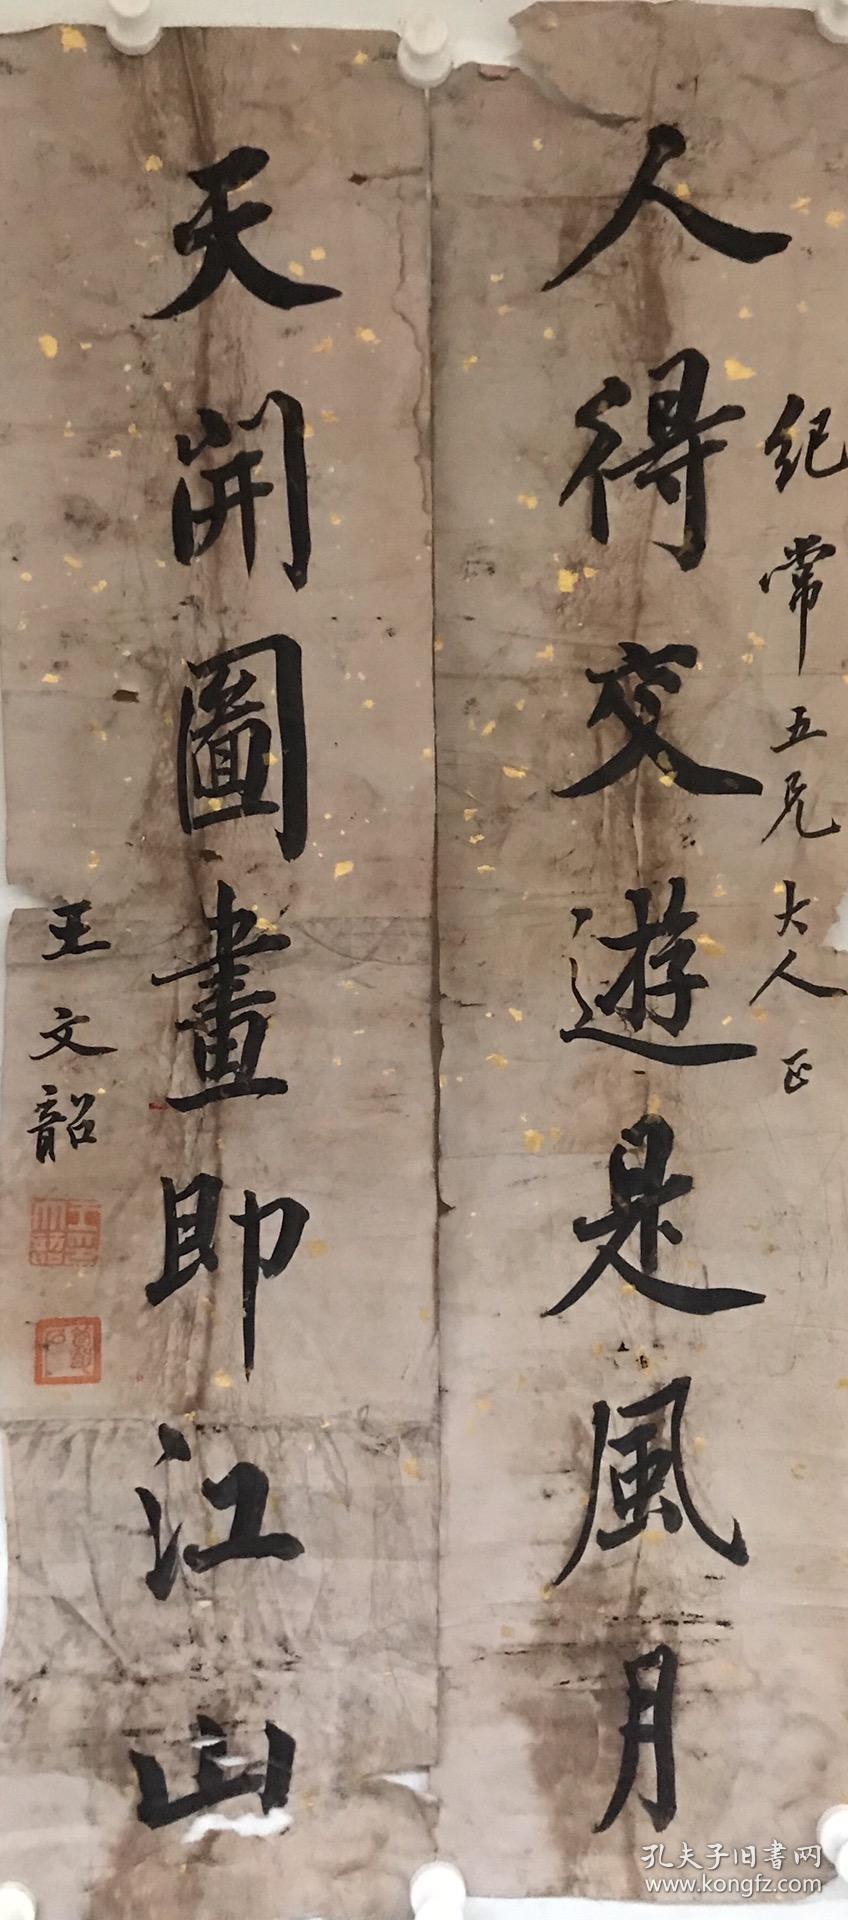 紀常五兄大人正
人得交遊是風月
天開圖畫即江山
王文韶
孔夫子旧书网
www.kongfz.com